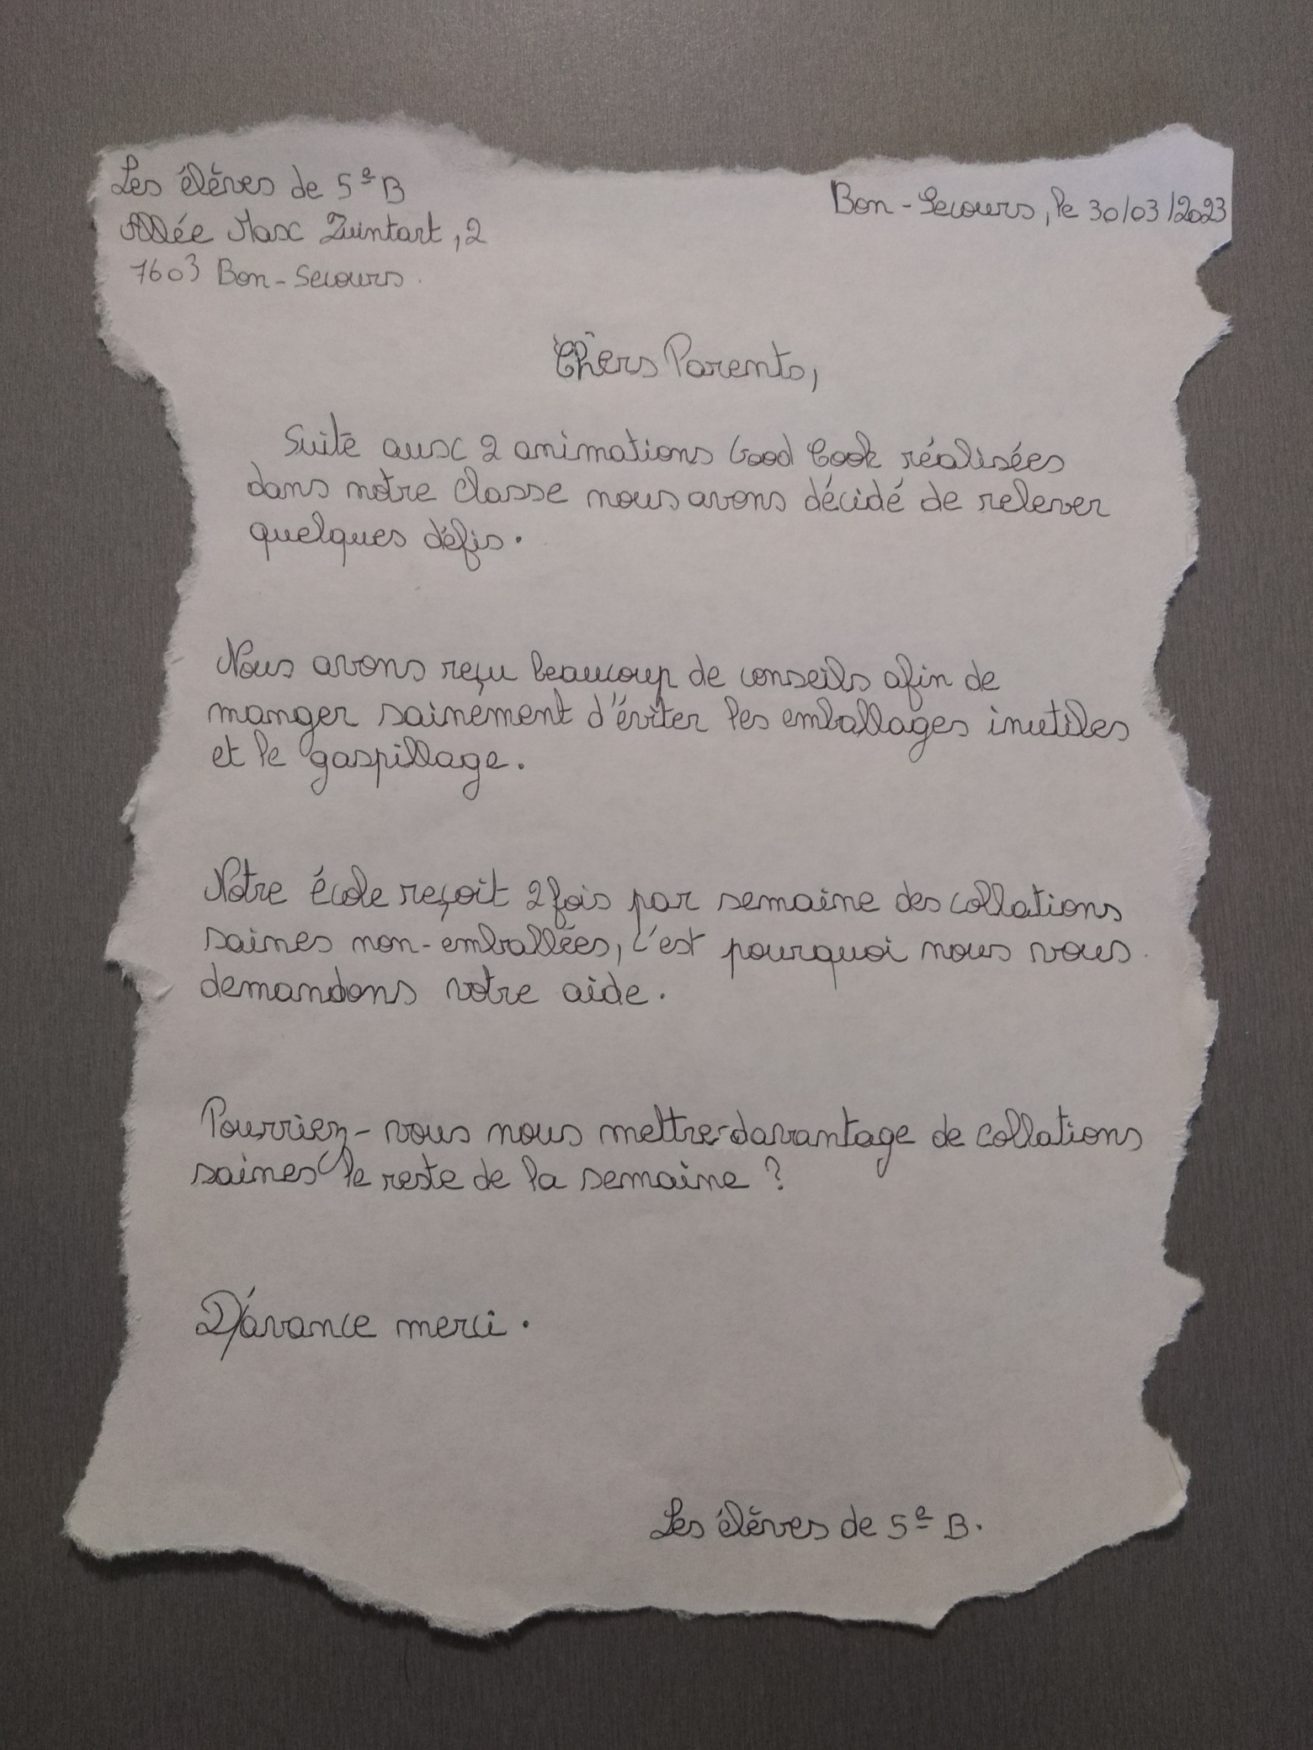 Les élèves de 5e B
Allée Max Zuintart, 2
7603 Bon-Secours.
Bon-Secours, le 30/03/2023
Chers Parents,
Suite aux 2 animations Good Cook réalisées
dans notre classe nous avons décidé de relever
quelques défis.
Nous avons reçu beaucoup de conseils afin de
manger sainement d'éviter les emballages inutiles
et le gaspillage.
Notre école reçoit 2 fois par semaine des collations
saines non-emballées, c'est pourquoi nous vous
demandons votre aide.
Pourriez-vous nous mettre davantage de collations
saines le reste de la semaine ?
D'avance merci.
Les élèves de 5e B.